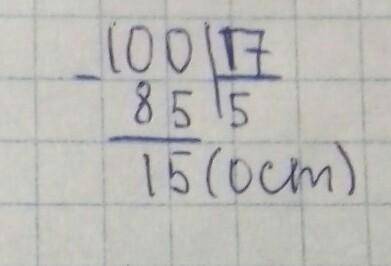 100 17
- 85 5
15 (ост)